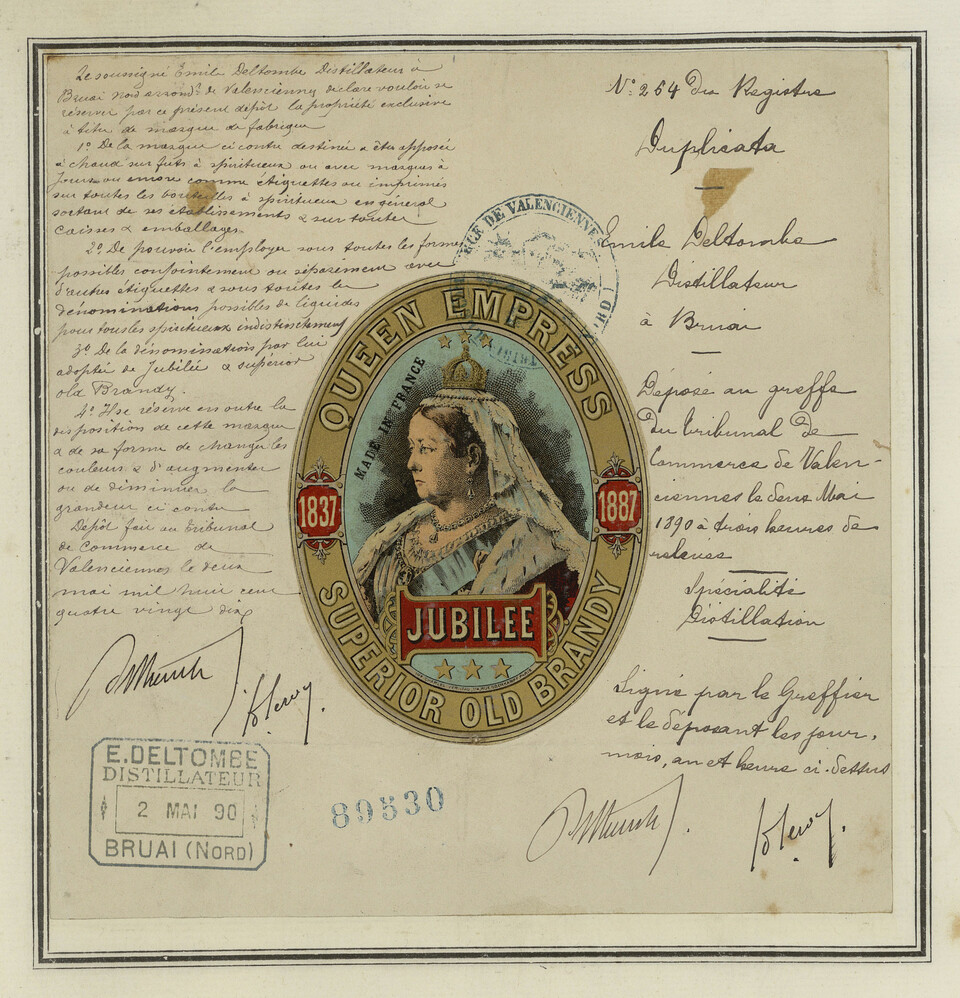 Le soussigné Emile Deltombe Distillateur à
Bruai Nord arrondt de Valenciennes déclare vouloir se
réserver par ce présent dépôt la propriété exclusive
à titre de marque de fabrique
1º De la marque ci contre destinée à être apposée
à chaud sur futs à spiritueux ou avec marques à
jours ou encore comme étiquettes ou imprimés
sur toutes les bouteilles à spiritueux en général
sortant de ses établissements & sur toutes
caisses & emballages.
2º De pouvoir l'employer sous toutes les formes
possibles conjointement ou séparément avec
d'autres étiquettes & sous toutes les
dénominations possibles de liquides
pour tous les spiritueux indistinctement
3º De la dénomination par lui
adoptée de Jubilée & supérior
old Brandy.
4º Il se réserve en outre la
disposition de cette marque
& de sa forme de changer les
couleurs & d'augmenter
ou de diminuer la
grandeur ci contre
Dépôt fait au Tribunal
de Commerce de
Valenciennes le deux
mai mil huit cent
quatre vingt dix
E. DELTOMBE
DISTILLATEUR
2 MAI 90
BRUAI (NORD)
DE VALENCIENNES
QUEEN EMPRESS
MADE IN FRANCE
1837
1887
JUBILEE
SUPERIOR OLD BRANDY
89530
Nº 264 du Registre
Duplicata
Emile Deltombe
Distillateur
à Bruai
Déposé au greffe
du tribunal de
Commerce de Valen-
ciennes le deux Mai
1890 à trois heures de
relevée
Spécialité
Distillation
Signé par le Greffier
et le déposant les jour,
mois, an et heure ci-dessus